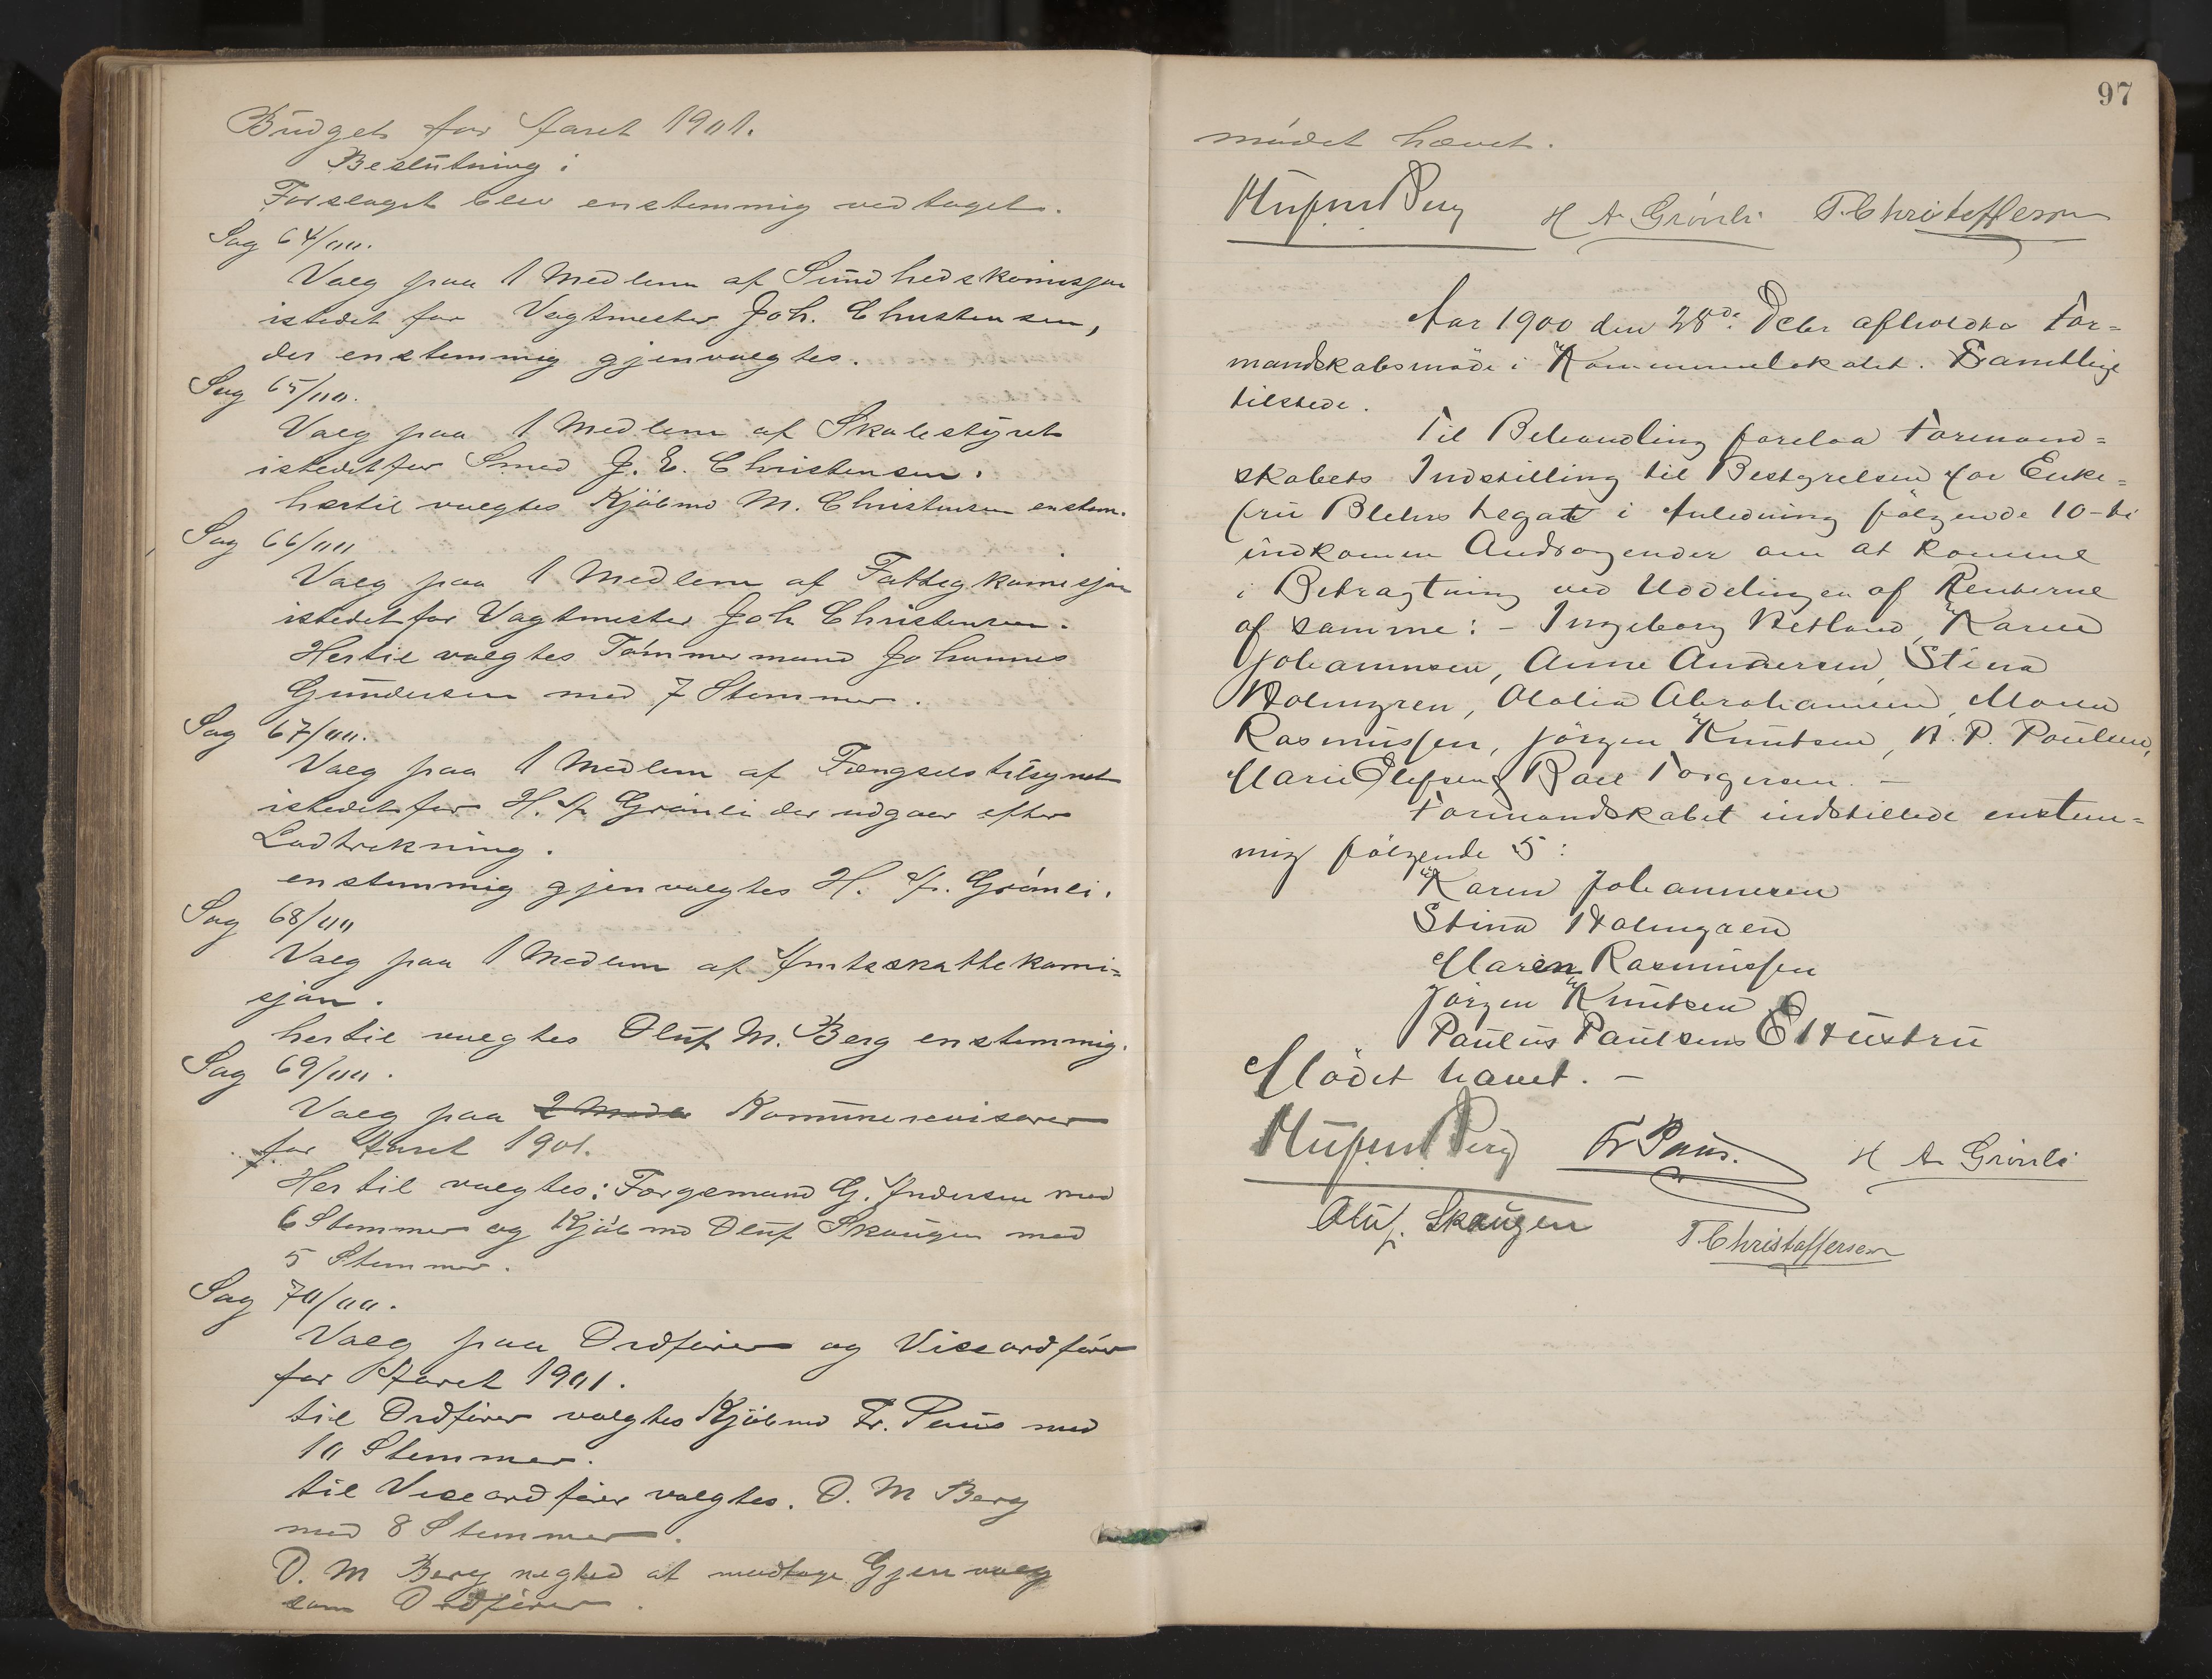 Budget for Aaret 1901.
Beslutning:
Forslaget blev enstemmig vedtaget.
Sag 64/00.
Valg paa 1 Medlem af Sundhedskomisjon
istedet for Vagtmester Joh. Christensen,
der enstemmig gjenvalgtes.
Sag 65/00.
Valg paa 1 Medlem af Skolestyret
istedetfor Smed J. E. Christensen.
hertil valgtes Kjøbmd M. Christensen enstem.
Sag 66/00
Valg paa 1 Medlem af Fattigkomisjon
istedetfor Vagtmester Joh Christensen.
Hertil valgtes Tømmermand Johannes
Gundersen med 7 Stemmer.
Sag 67/00.
Valg paa 1 Medlem af Fængselstilsynet
istedetfor H. A. Grønli der udgaar efter
Lodtrekning.
enstemmig gjenvalgtes H. A. Grønli.
Sag 68/00
Valg paa 1 Medlem af Amtsskattekomi=
sjon.
hertil valgtes Oluf M. Berg enstemmig.
Sag 69/00.
Valg paa 2 Medle Komunerevisorer
for Aaret 1901.
Hertil valgtes: Forgemand G. Andersen med
6 Stemmer og Kjøbmd Oluf Skougen med
5 Stemmer.
Sag 70/00.
Valg paa Ordfører og Viseordfører
for Aaret 1901.
til Ordfører valgtes Kjøbmd Fr. Paus med
10 Stemmer.
til Viseordfører valgtes. O. M Berg
med 8 Stemmer.
O. M Berg negted at modtage Gjenvalg
som Ordfører.
97
mødet hævet.
Berg H A Grønli T. Christoffersen
Aar 1900 den 28de Debr afholdtes For=
mandskabsmøde i Kommunelokalet. Samtlige
tilstede.
Til Behandling forelaa Formand=
skabets Indstilling til Bestyrelsen for Enke=
fru Blehrs Legat i Anledning følgende 10-ti
indkomne Andragender om at komme
i Betragtning ved Uddelingen af Renterne
af samme: - Ingeborg Hetland, Karen
Johannesen, Anne Andersen, Stina
Holmgren, Olalia Abrahamsen, Maren
Rasmussen, Jørgen Knutsen, H. P. Paulsen,
Marie Olefsen & Roll Torgersen. -
Formandskabet indstillede enstem=
mig følgende 5:
Karen Johannesen
Stina Holmgren
Maren Rasmussen
Jørgen Knutsen &
Paulus Paulsens Hustru
Mødet hævet. -
Berg Fr Paus. H A Grønli
Oluf. Skaugen T. Christoffersen